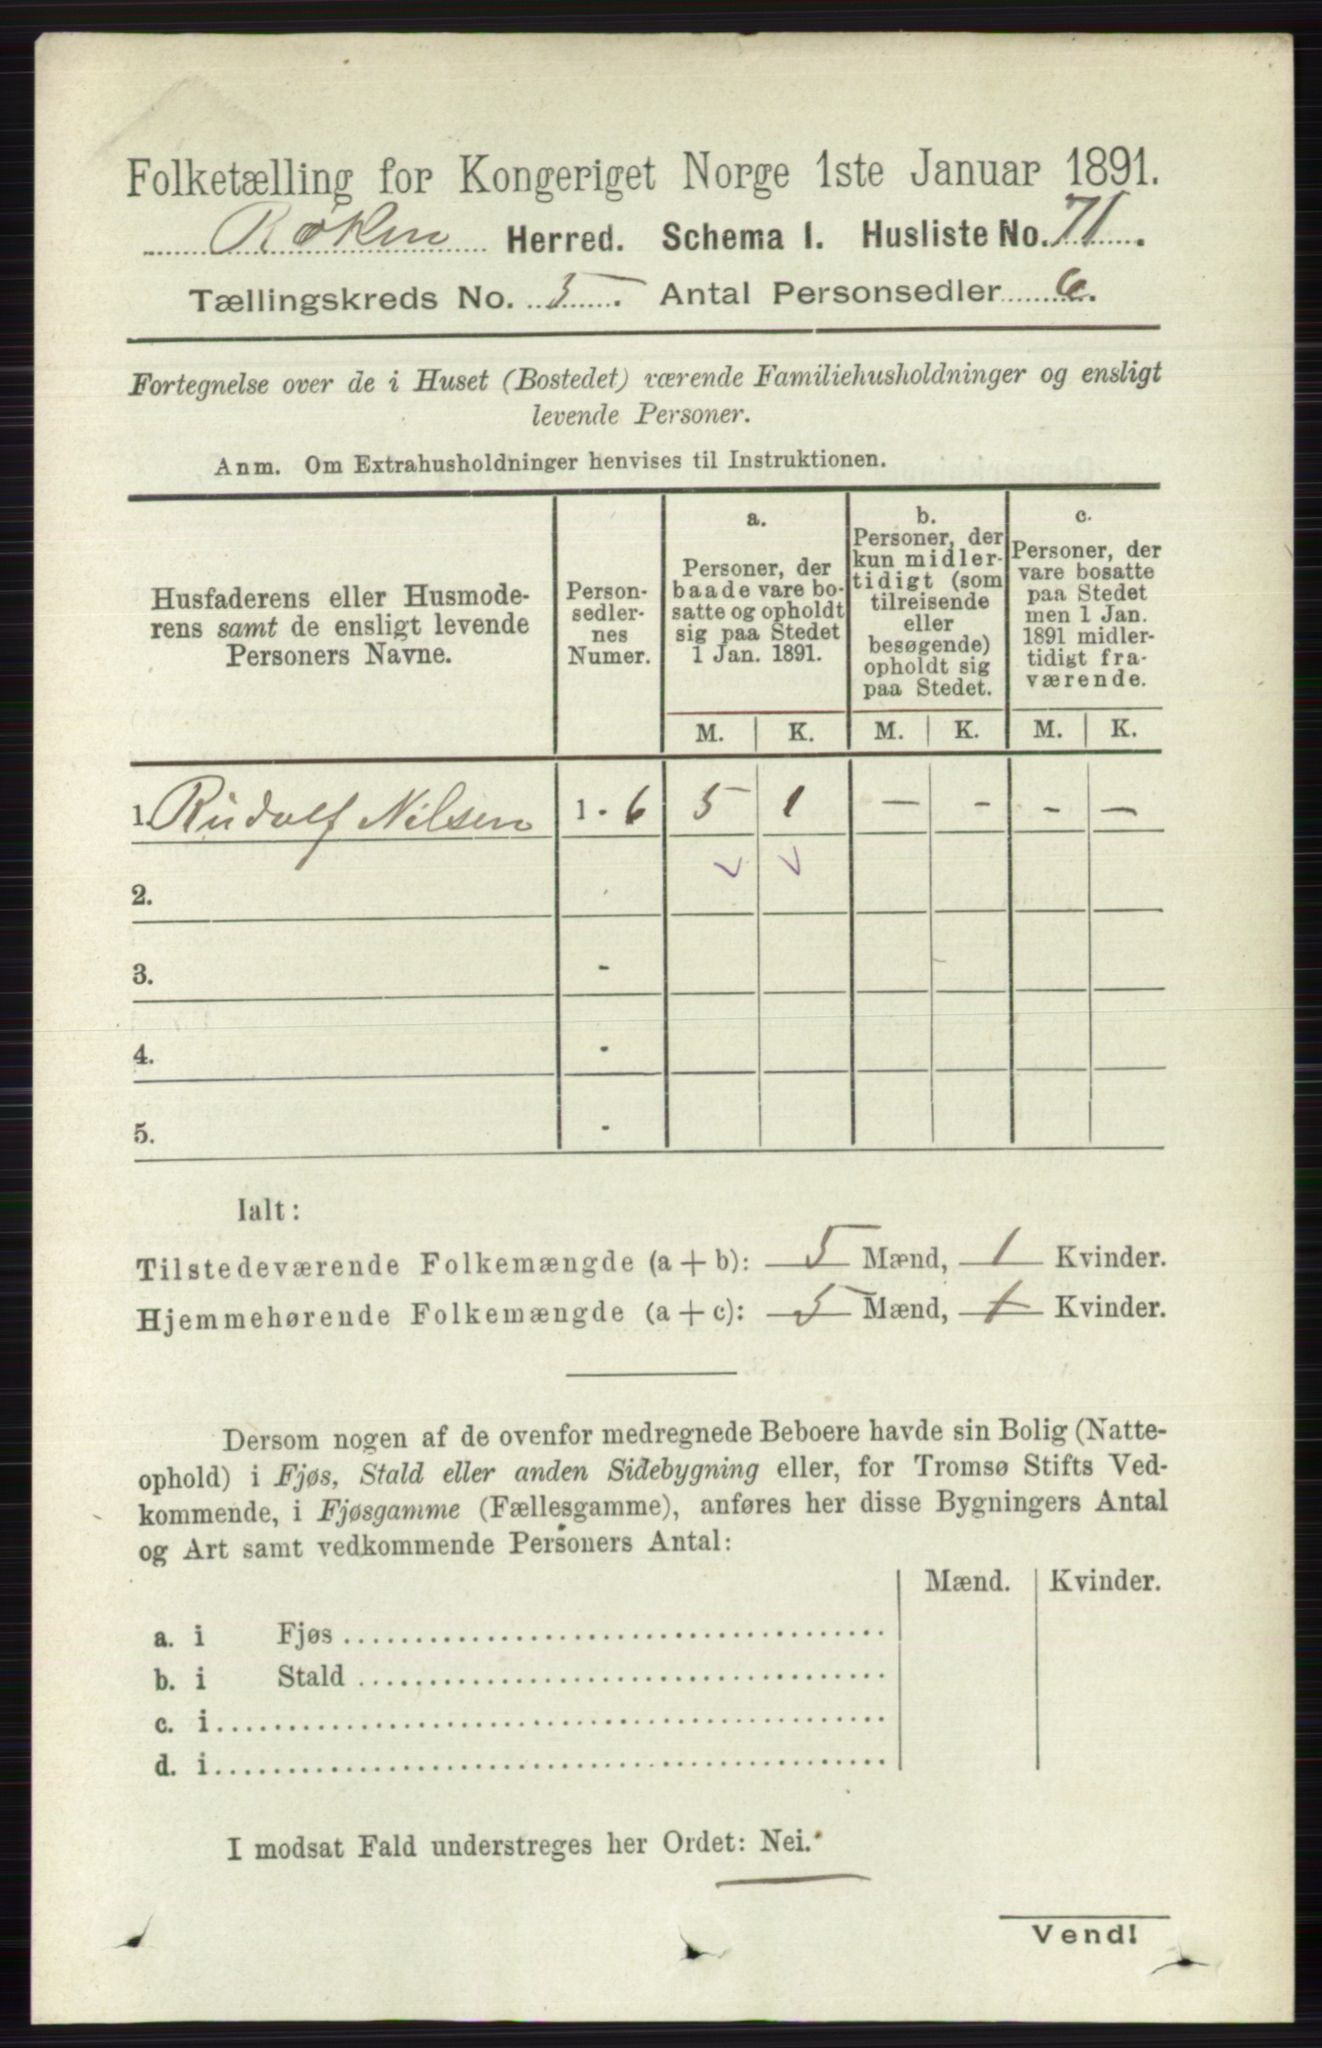 Folketælling for Kongeriget Norge 1ste Januar 1891.
Røken Herred. Schema I. Husliste No. 71.
Tællingskreds No. 5. Antal Personsedler 6.
Fortegnelse over de i Huset (Bostedet) værende Familiehusholdninger og ensligt
levende Personer.
Anm. Om Extrahusholdninger henvises til Instruktionen.
Husfaderens eller Husmode-
rens samt de ensligt levende
Personers Navne.
Person-
sedler-
nes
Numer.
a.
Personer, der
baade vare bo-
satte og opholdt
sig paa Stedet
1 Jan. 1891.
b.
Personer, der
kun midler-
tidigt (som
tilreisende
eller
besøgende)
opholdt sig
paa Stedet.
c.
Personer, der
vare bosatte
paa Stedet
men 1 Jan.
1891 midler-
tidigt fra-
værende.
M. K. M. K. M. K.
1. Rudolf Nilsen 1 - 6 5 1 — - - —
2.
3. -
4. -
5. -
Ialt:
Tilstedeværende Folkemængde (a + b): 5 Mænd, 1 Kvinder.
Hjemmehørende Folkemængde (a + c): 5 Mænd, 1 Kvinder.
Dersom nogen af de ovenfor medregnede Beboere havde sin Bolig (Natte-
ophold) i Fjøs, Stald eller anden Sidebygning eller, for Tromsø Stifts Ved-
kommende, i Fjøsgamme (Fællesgamme), anføres her disse Bygningers Antal
og Art samt vedkommende Personers Antal:
Mænd. Kvinder.
a. i Fjøs
b. i Stald
c. i
d. i
I modsat Fald understreges her Ordet: Nei.
Vend!